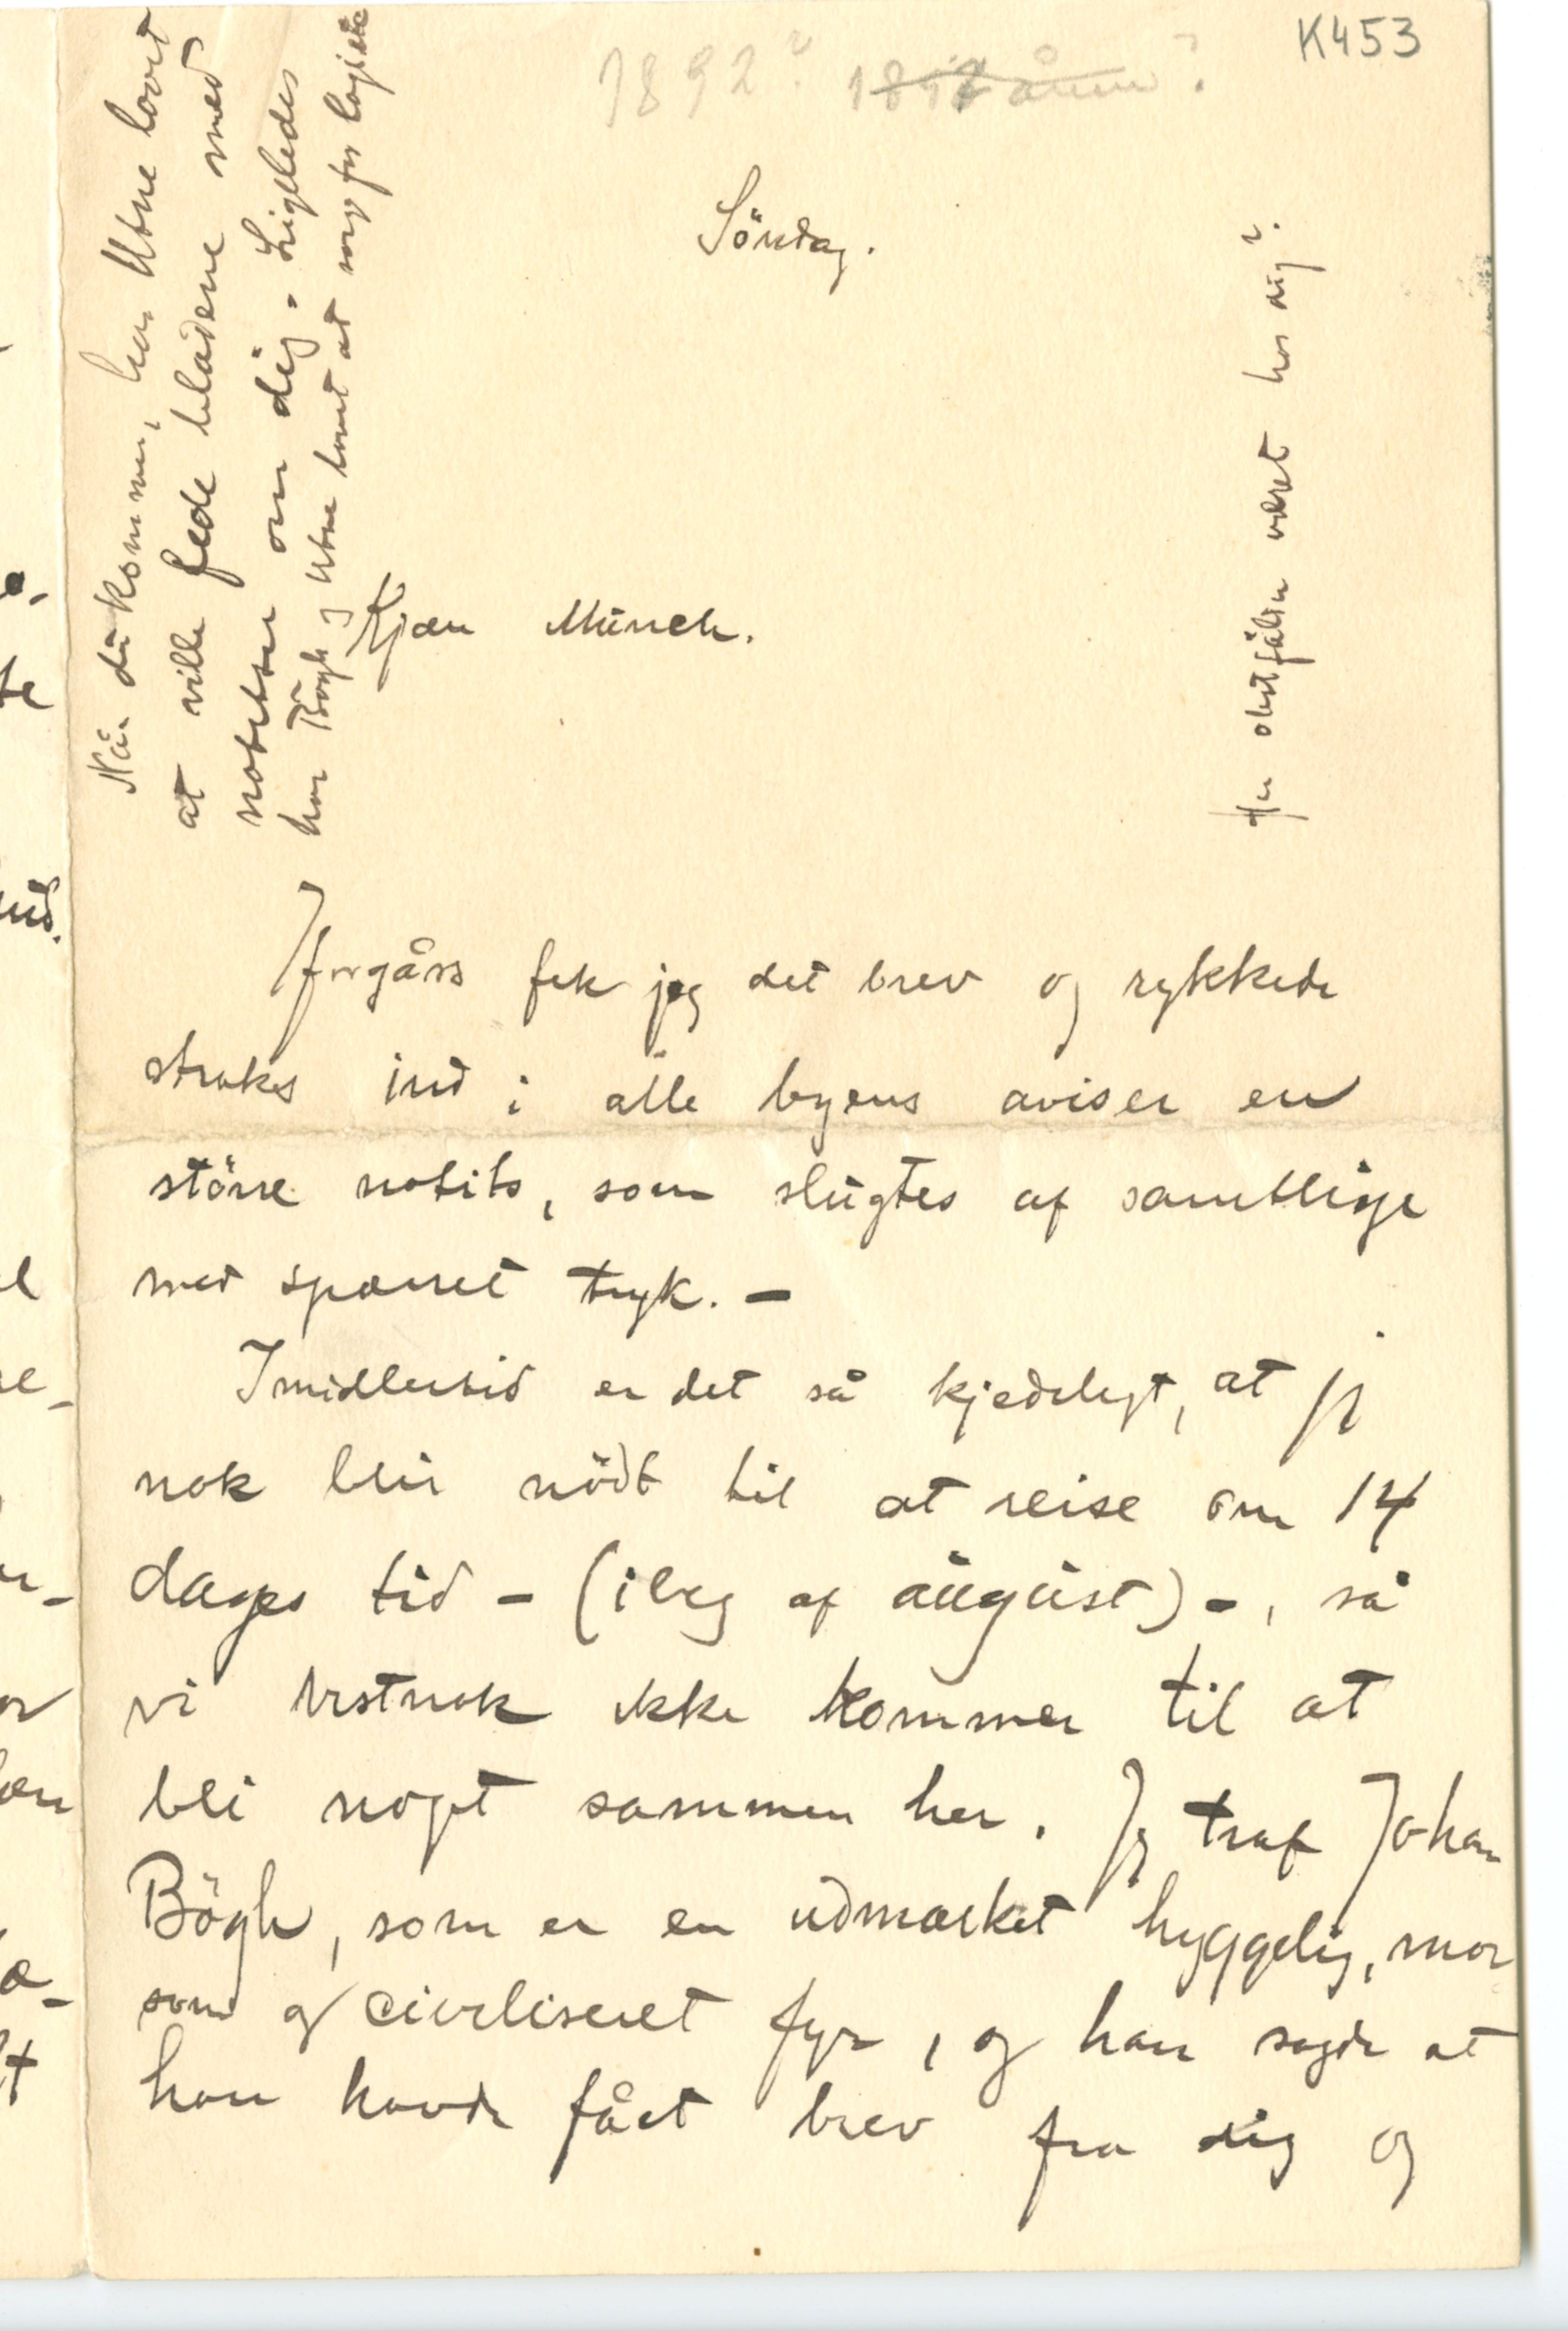 K453
1892?
Söndag.
Kjære Munch.
Iforgårs fik jeg dit brev og rykkede
straks ind i alle byens aviser en
större notits, som slugtes af samtlige
med sparret tryk. –
Imidlertid er det så kjedeligt, at jeg
nok blir nödt til at reise om 14
dages tid – (i beg af august) –, så
vi vistnok ikke kommer til at
bli noget sammen her. Jeg traf Johan
Bögh, som er en udmærket hyggelig, mor
som og civiliseret fyr, og han sagde at
han havde fået brev fra dig og
Når du kommer, har Utne lovet
at ville fede bladene med
notitser om dig. Ligeledes
har Bögh og Utne lovet at sörge for logis
Har obstfelder været hos dig?